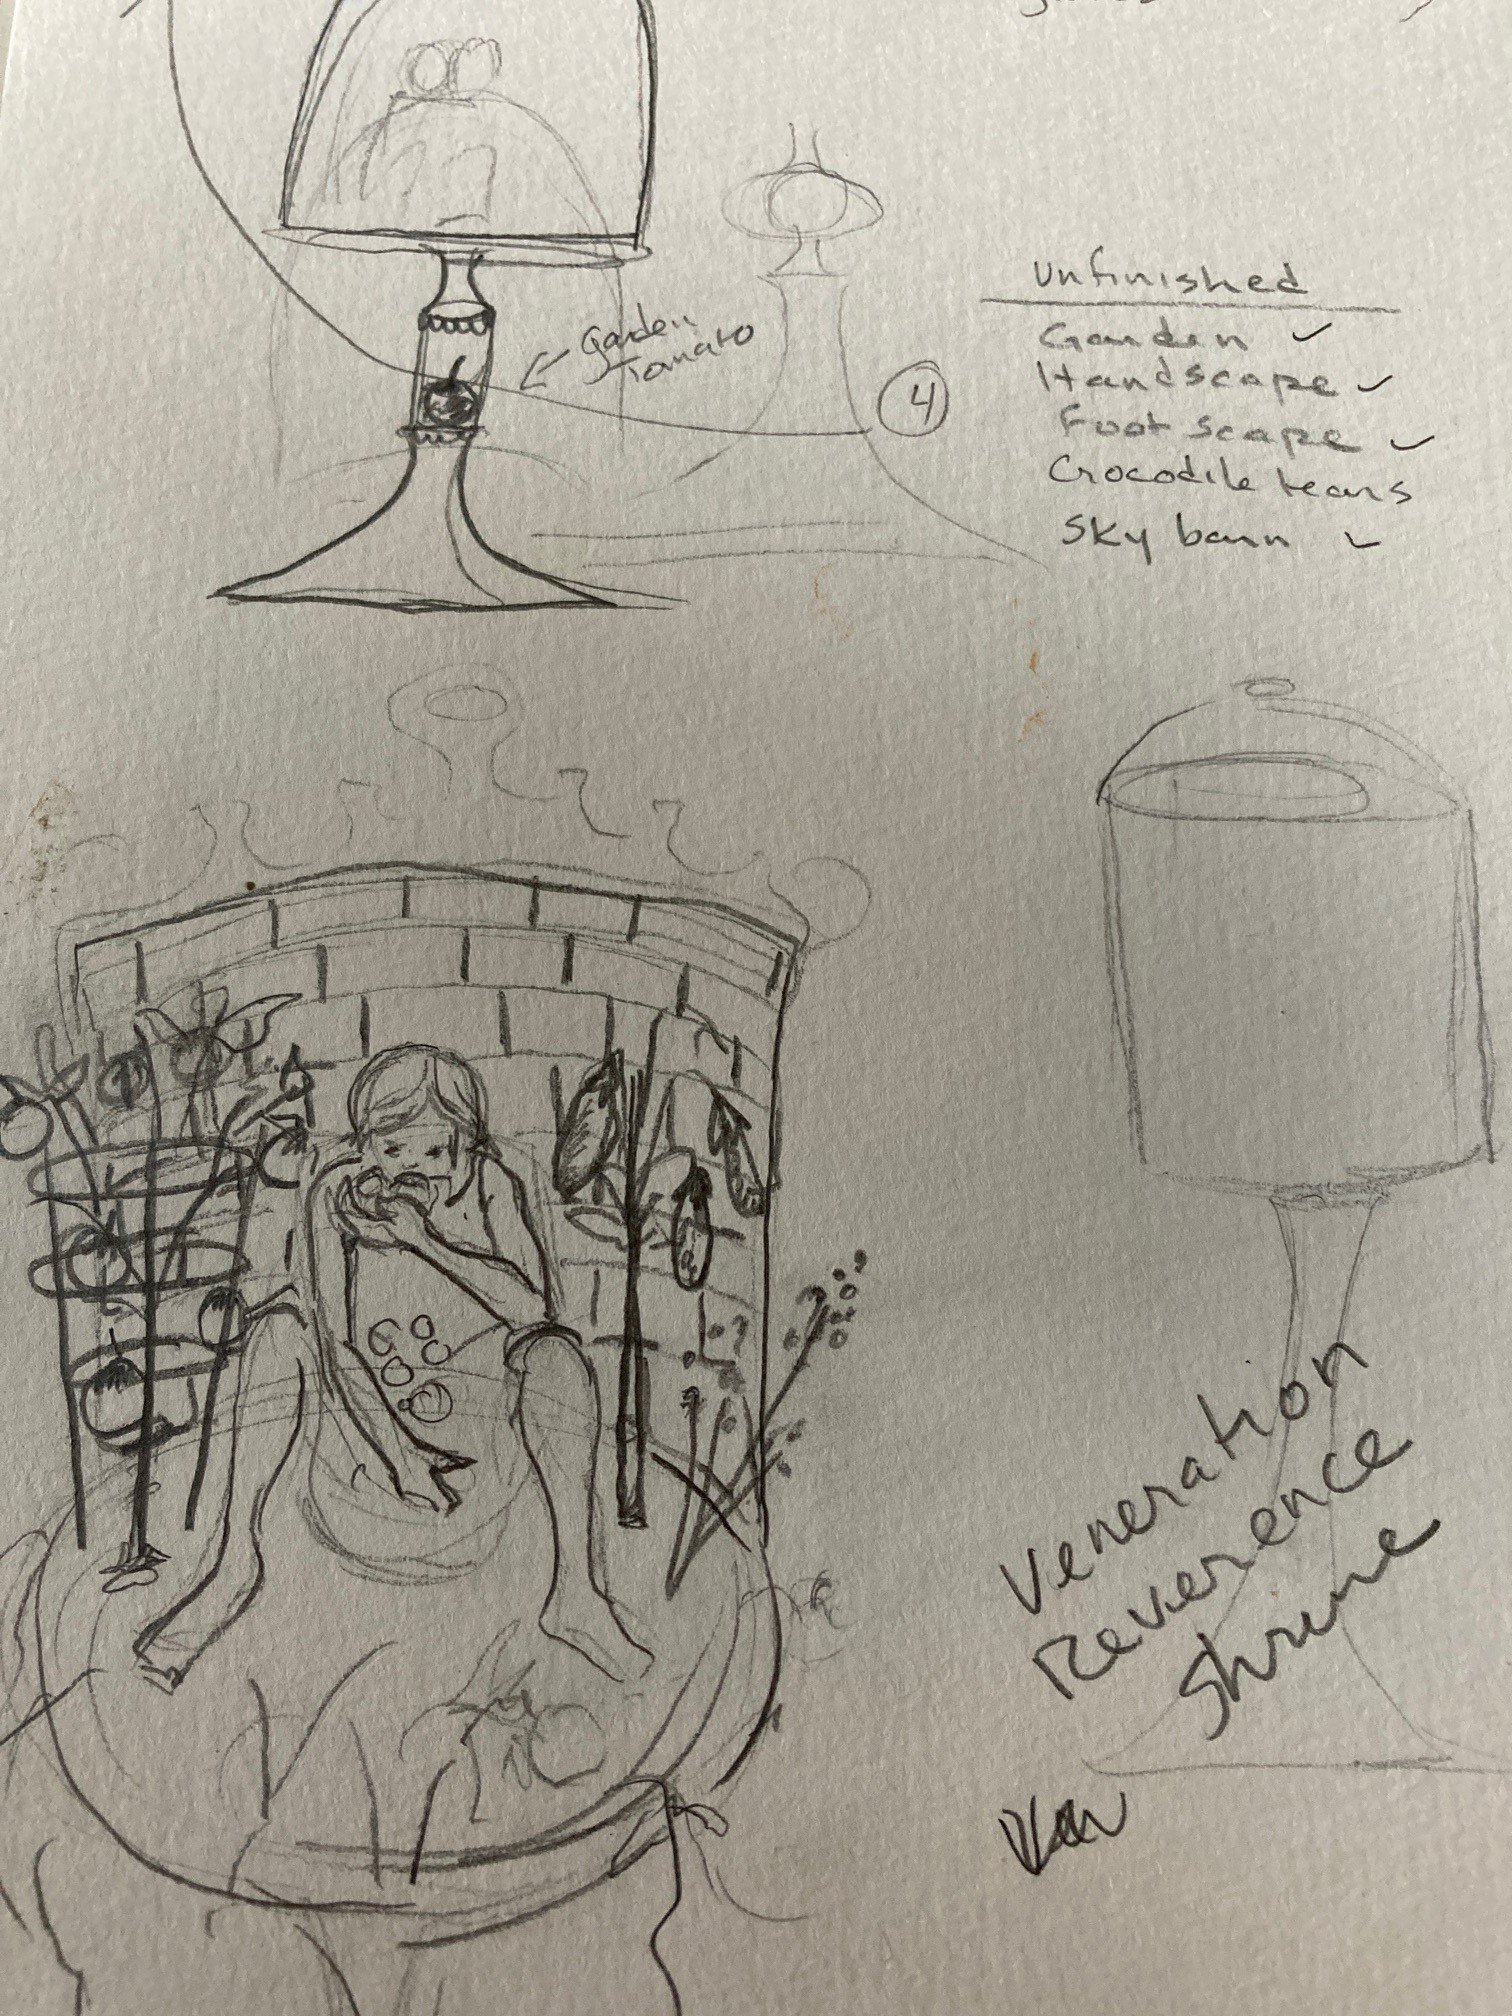 Garden
Tomato
4
Unfinished
Garden ✓
Handscape ✓
Foot scape ✓
Crocodile tears
Sky barn ✓
Veneration
Reverence
Shrine